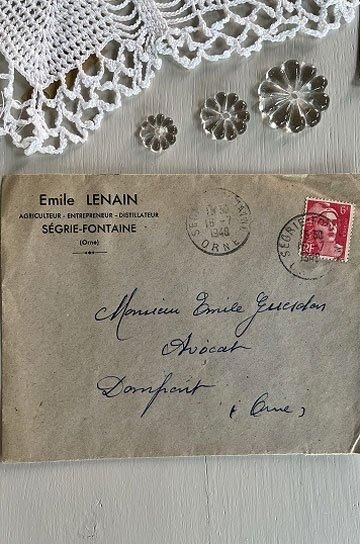 Emile LENAIN
AGRICULTEUR - ENTREPRENEUR - DISTILLATEUR
SÉGRIE-FONTAINE
(Orne)
18-7
1948
ORNE
6F
RF
SÉGRIE-FONT
1948
Monsieur Emile
Avocat
Domfront
(Orne)